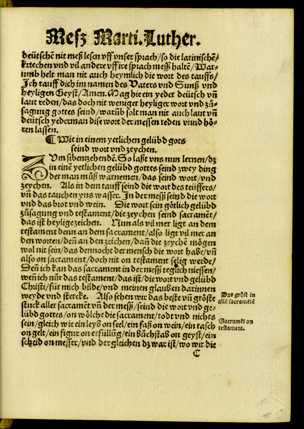 Mesz Marti. Luther.
deütschē nit meß lesen vff vnser sprach/so die latinischē/
kriechen vnd vil andere vff ire sprach meß haltē/War-
umb helt man nit auch heymlich die wort des tauffs/
Ich tauff dich im namen des Vaters vnd Suns vnd
heyligen Geyst/Amen. Mag hie ein yeder deütsch vñ
laut reden/das doch nit weniger heyliger wort vnd zů-
sagung gottes seind/warūb solt man nit auch laut vñ
deütsch yederman dise wort der messen reden vnnd hö-
ren lassen.
¶ Wie in einem yetlichen gelübd gots
seind wort vnd zeychen.
ZUm sibenzehendē. So lasst vns nun lernen/dz
in einē yetlichen gelübd gottes seind zwey ding
deren man můß warnemen/das seind wort vnd
zeychen. Als in dem tauff seind die wort des teüffers/
vñ das tauchen yns wasser. In der meß seind die wort
vnd das brot vnd wein. Die wort sein götlich gelübd
zůsagung vnd testament/die zeychen seind sacramēt/
das ist heylige zeichen. Nun als vil mer ligt an dem
testament dann an dem sacrament/also ligt vil mer an
den worten/dañ an den zeichen/dañ die zeychē mögen
wol nit sein/das dennocht der mensch die wort habe/vñ
also on sacrament/doch nit on testament selig werde/
Denn ich kan das sacrament in der messz teglich niessen/
wen̄ ich nůr das testament/das ist/die wort vnd gelübd
Christi/für mich bilde/vnd meinen glauben darinnen
weyde vnd stercke. Also sehen wir das beste vñ gröste
stuck aller sacramēt vñ der messz/seind die wort vnd ge-
lübd gottes/on wölche die sacrament/todt vnd nichts
sein/gleich wie ein leyb on seel/ein faß on wein/ein tasch
on gelt/ein figur on erfüllūg/ein bůchstab on geyst/ein
scheid on messer/vnd der gleichen dz war ist/wo wir die
C
Das gröst in
alle sacramēt
Sacramēt on
testament.